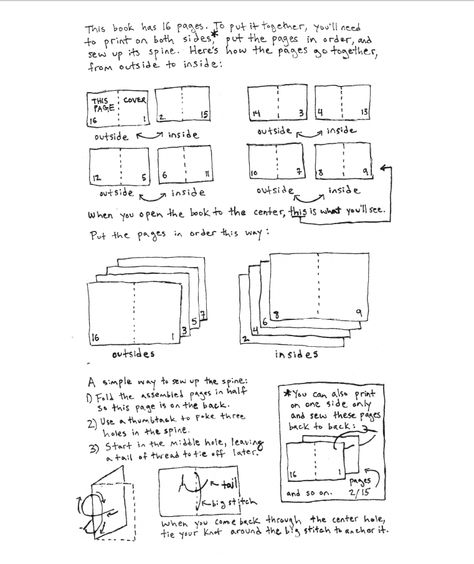 This book has 16 pages. To put it together, you'll need
to print on both sides,* put the pages in order, and
sew up its spine. Here's how the pages go together,
from outside to inside:
THIS PAGE COVER
16 1 2 15
14 3 4 13
outside inside outside inside
12 5 6 11
10 7 8 9
outside inside outside inside
When you open the book to the center, this is what you'll see.
Put the pages in order this way:
16 1 3 5 7
2 4 6 8 9
outsides insides
A simple way to sew up the spine:
1) Fold the assembled pages in half
so this page is on the back.
2) Use a thumbtack to poke three
holes in the spine.
3) Start in the middle hole, leaving
a tail of thread to tie off later.
*You can also print
on one side only
and sew these pages
back to back:
16 1
pages
and so on. 2/15
tail
big stitch
When you come back through the center hole,
tie your knot around the big stitch to anchor it.